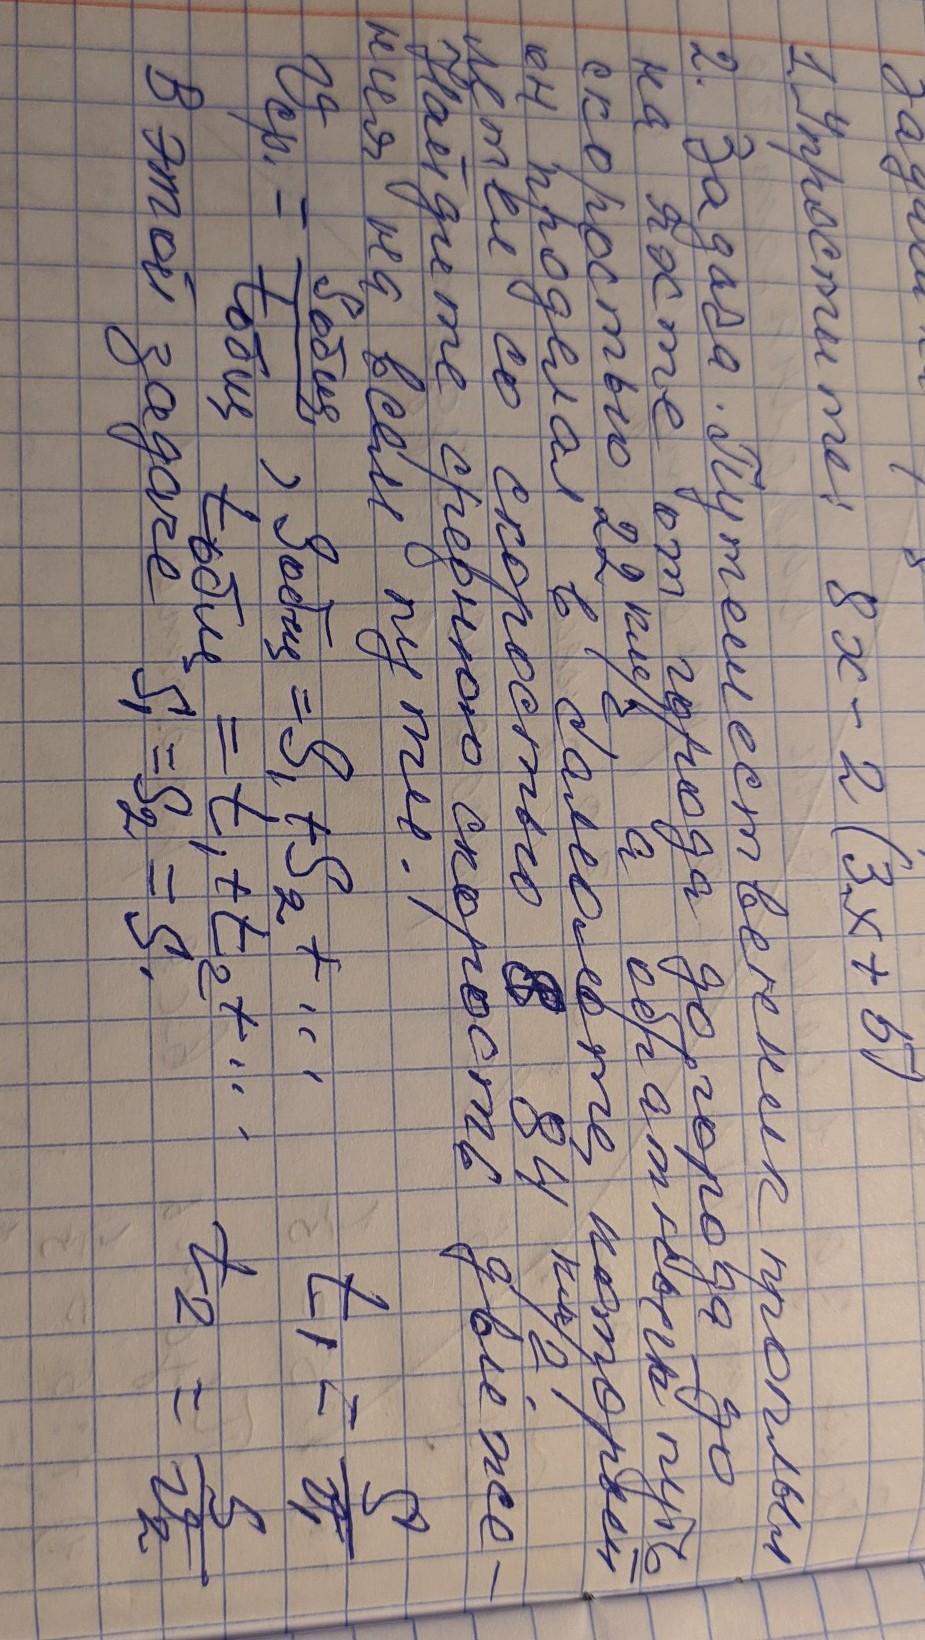 1. Упростите: 8x - 2(3x + 5)
2. Задача. Путешественник проплыл
на яхте от города до города до
скоростью 22 км/ч а обратный путь
он проделал в самолете, который
летел со скоростью 84 км/2.
Найдите среднюю скорость движе-
ния на всем пути.
Vср. = Sобщ/tобщ, Sобщ = S₁ + S₂ + ...
tобщ = t₁ + t₂ + ...
t₁ = S/V₁
В этой задаче S₁ = S₂ = S.
t2 = S/V₂